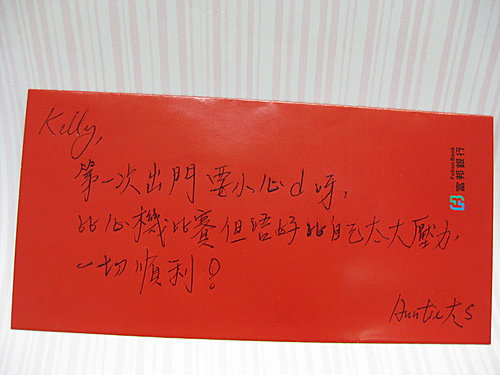 Kelly,
第一次出門要小心d呀,
比心機比賽但唔好比自己太大壓力,
一切順利!
Auntie 大S
Fubon Bank
富邦銀行